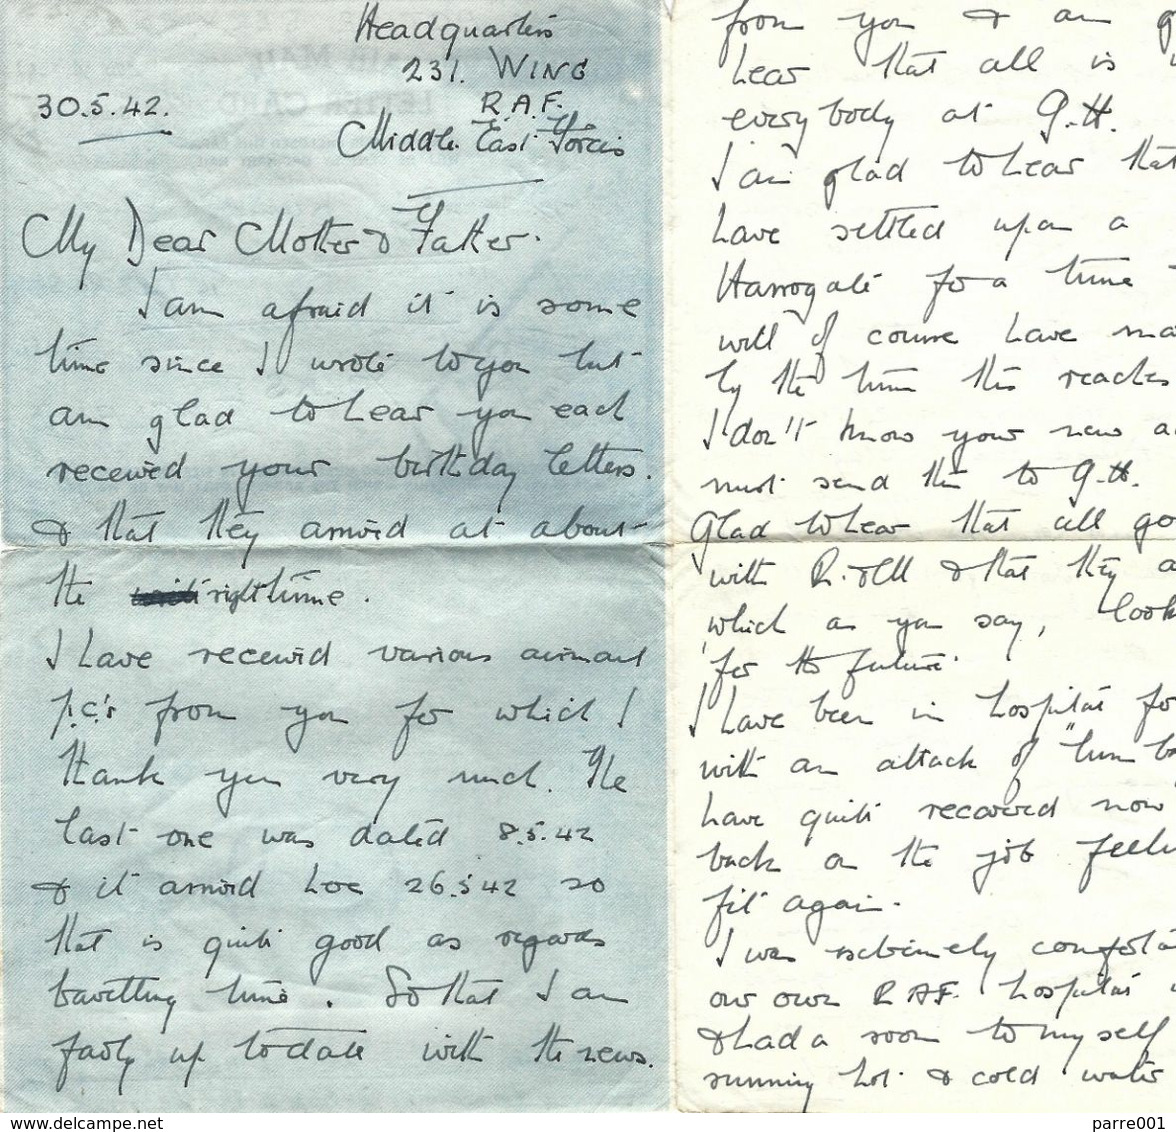 Headquarters
231. WING
30.5.42.
R.A.F.
Middle East Forces
My Dear Mother & Father.
I am afraid it is some
time since I wrote to you but
am glad to hear you each
received your birthday letters.
& that they arrived at about
the right time.
I have received various airmail
p.c's from you for which I
thank you very much. The
last one was dated 8.5.42
& it arrived here 26.5.42 so
that is quite good as regards
travelling time. So that I am
fairly up to date with the news.
from you & am g
hear that all is
everybody at G.H.
I am glad to hear that
have settled upon a
Harrogate for a time
will of course have ma
by the time this reaches
I don't know your new a
must send this to G.H.
Glad to hear that all go
with R. & M & that they a
which as you say, look
for the future.
I have been in hospital fo
with an attack of "lumb
have quite recovered now
back on the job feeli
fit again.
I was extremely comforta
our own R.A.F. hospital
& had a room to myself
running hot & cold water
www.delcampe.net
parre001